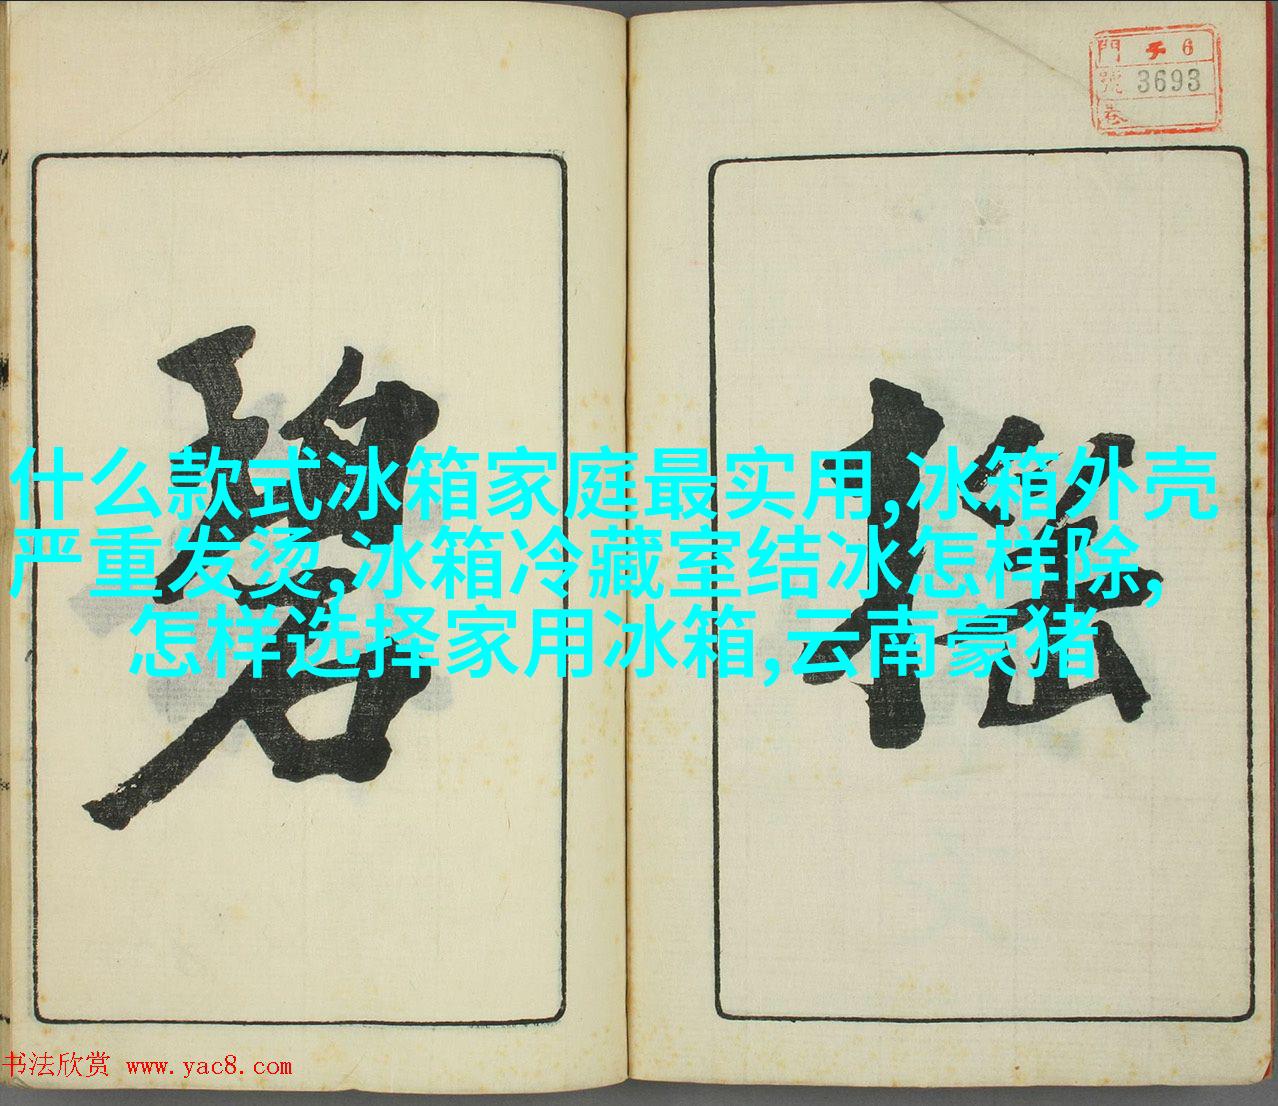 門 千 6
號 3693
卷
碧 松
什么款式冰箱家庭最实用,冰箱外壳
严重发烫,冰箱冷藏室结冰怎样除,
怎样选择家用冰箱,云南豪猪
书法欣赏 www.yac8.com